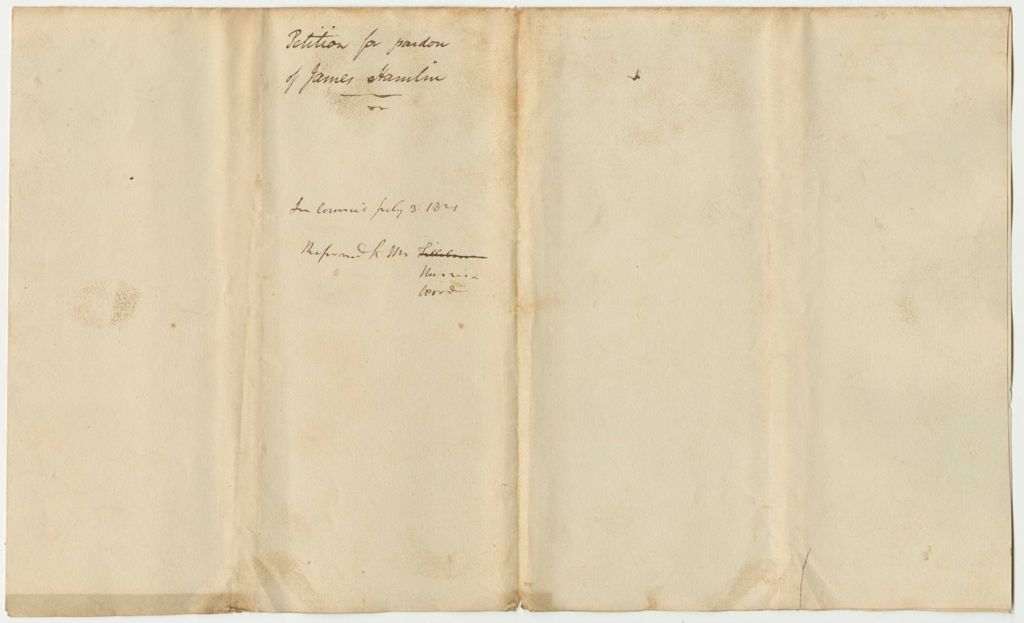 Petition for pardon
of James Hamlin
In Council July 3 1821
Referred to Mr